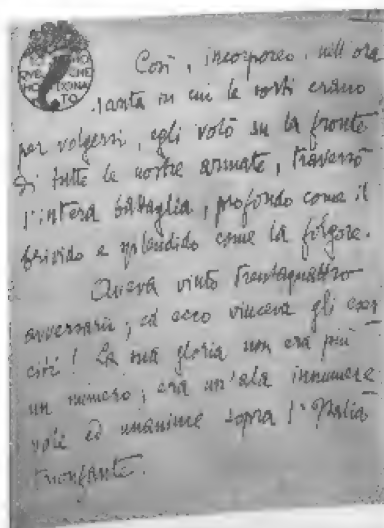 IO HO
QVEL CHE
HO DONA
TO
Così, incorporeo, nell'ora
santa in cui le sorti erano
per volgersi, egli volò su la fronte
di tutte le nostre armate, traversò
l'intera battaglia, profondo come il
brivido e splendido come la folgore.
Aveva vinto trentaquattro
avversarii; ed ecco vinceva gli eser
citi! La sua gloria non era più
un numero; era un'ala innumere
vole ed unanime sopra l'Italia
trionfante.